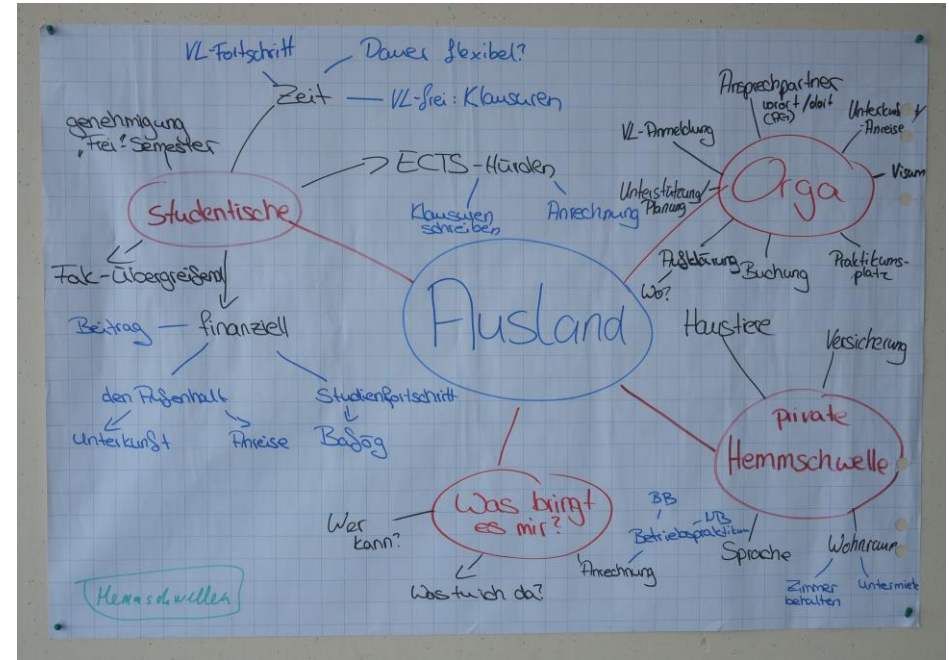 VL-Fortschritt
Dauer flexibel?
Zeit
VL-frei: Klausuren
genehmigung
"Frei"-Semester
ECTS-Hürden
Klausuren
schreiben
Anrechnung
Studentische
Fak-Übergreifend
Beitrag
finanziell
den Aufenhalt
Studienfortschritt
Unterkunft
Anreise
Bafög
Ausland
Ansprechpartner
vorort/dort
VL-Anmeldung
Unterkunft/
-Anreise
Visum
Orga
Unterstützung/
Planung
Aufklärung
Wo?
Buchung
Praktikums-
platz
Haustiere
Versicherung
private
Hemmschwelle
Sprache
Wohnraum
Zimmer
behalten
Untermiete
Was bringt
es mir?
Wer
kann?
Was tu ich da?
Anrechnung
BB
UB
Betriebspraktikum
Hemmschwellen